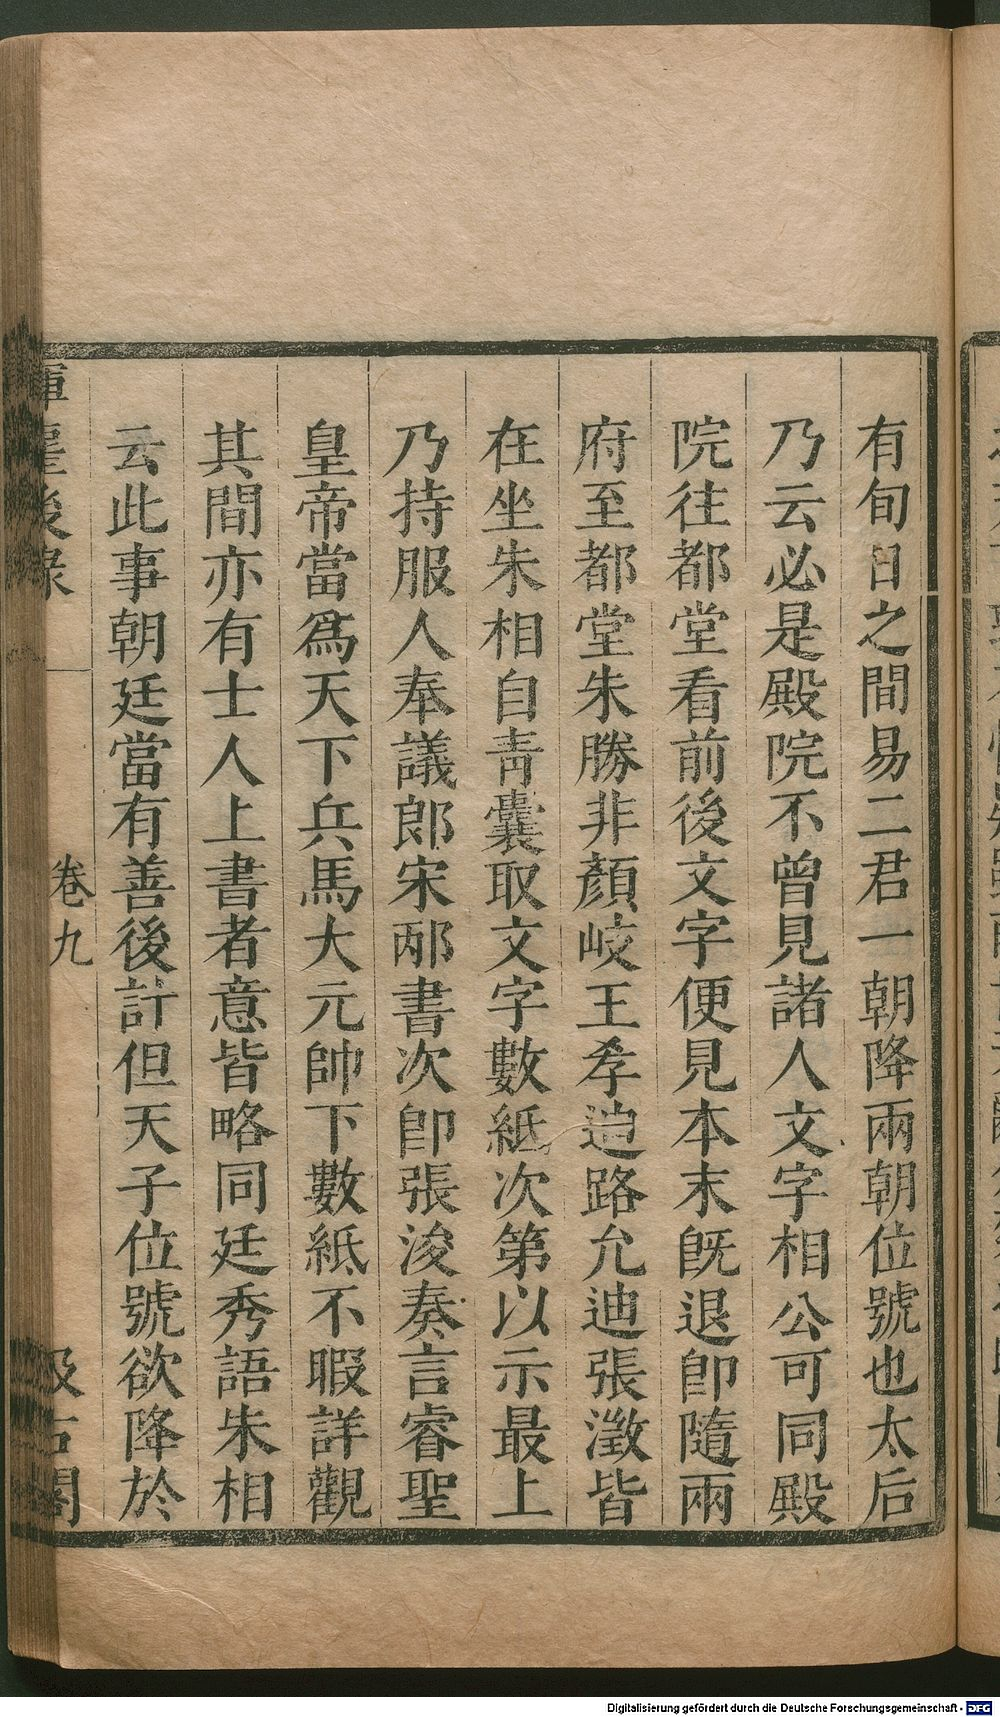 有旬日之間易二君一朝降兩朝位號也太后
乃云必是殿院不曾見諸人文字相公可同殿
院往都堂看前後文字便見本末旣退卽隨兩
府至都堂朱勝非顏岐王孝迪路允迪張澂皆
在坐朱相自靑囊取文字數紙次第以示最上
乃持服人奉議郎宋邴書次卽張浚奏言睿聖
皇帝當爲天下兵馬大元帥下數紙不暇詳觀
其間亦有士人上書者意皆略同廷秀語朱相
云此事朝廷當有善後計但天子位號欲降於
揮麈後錄 卷九 汲古閣
Digitalisierung gefördert durch die Deutsche Forschungsgemeinschaft - DFG